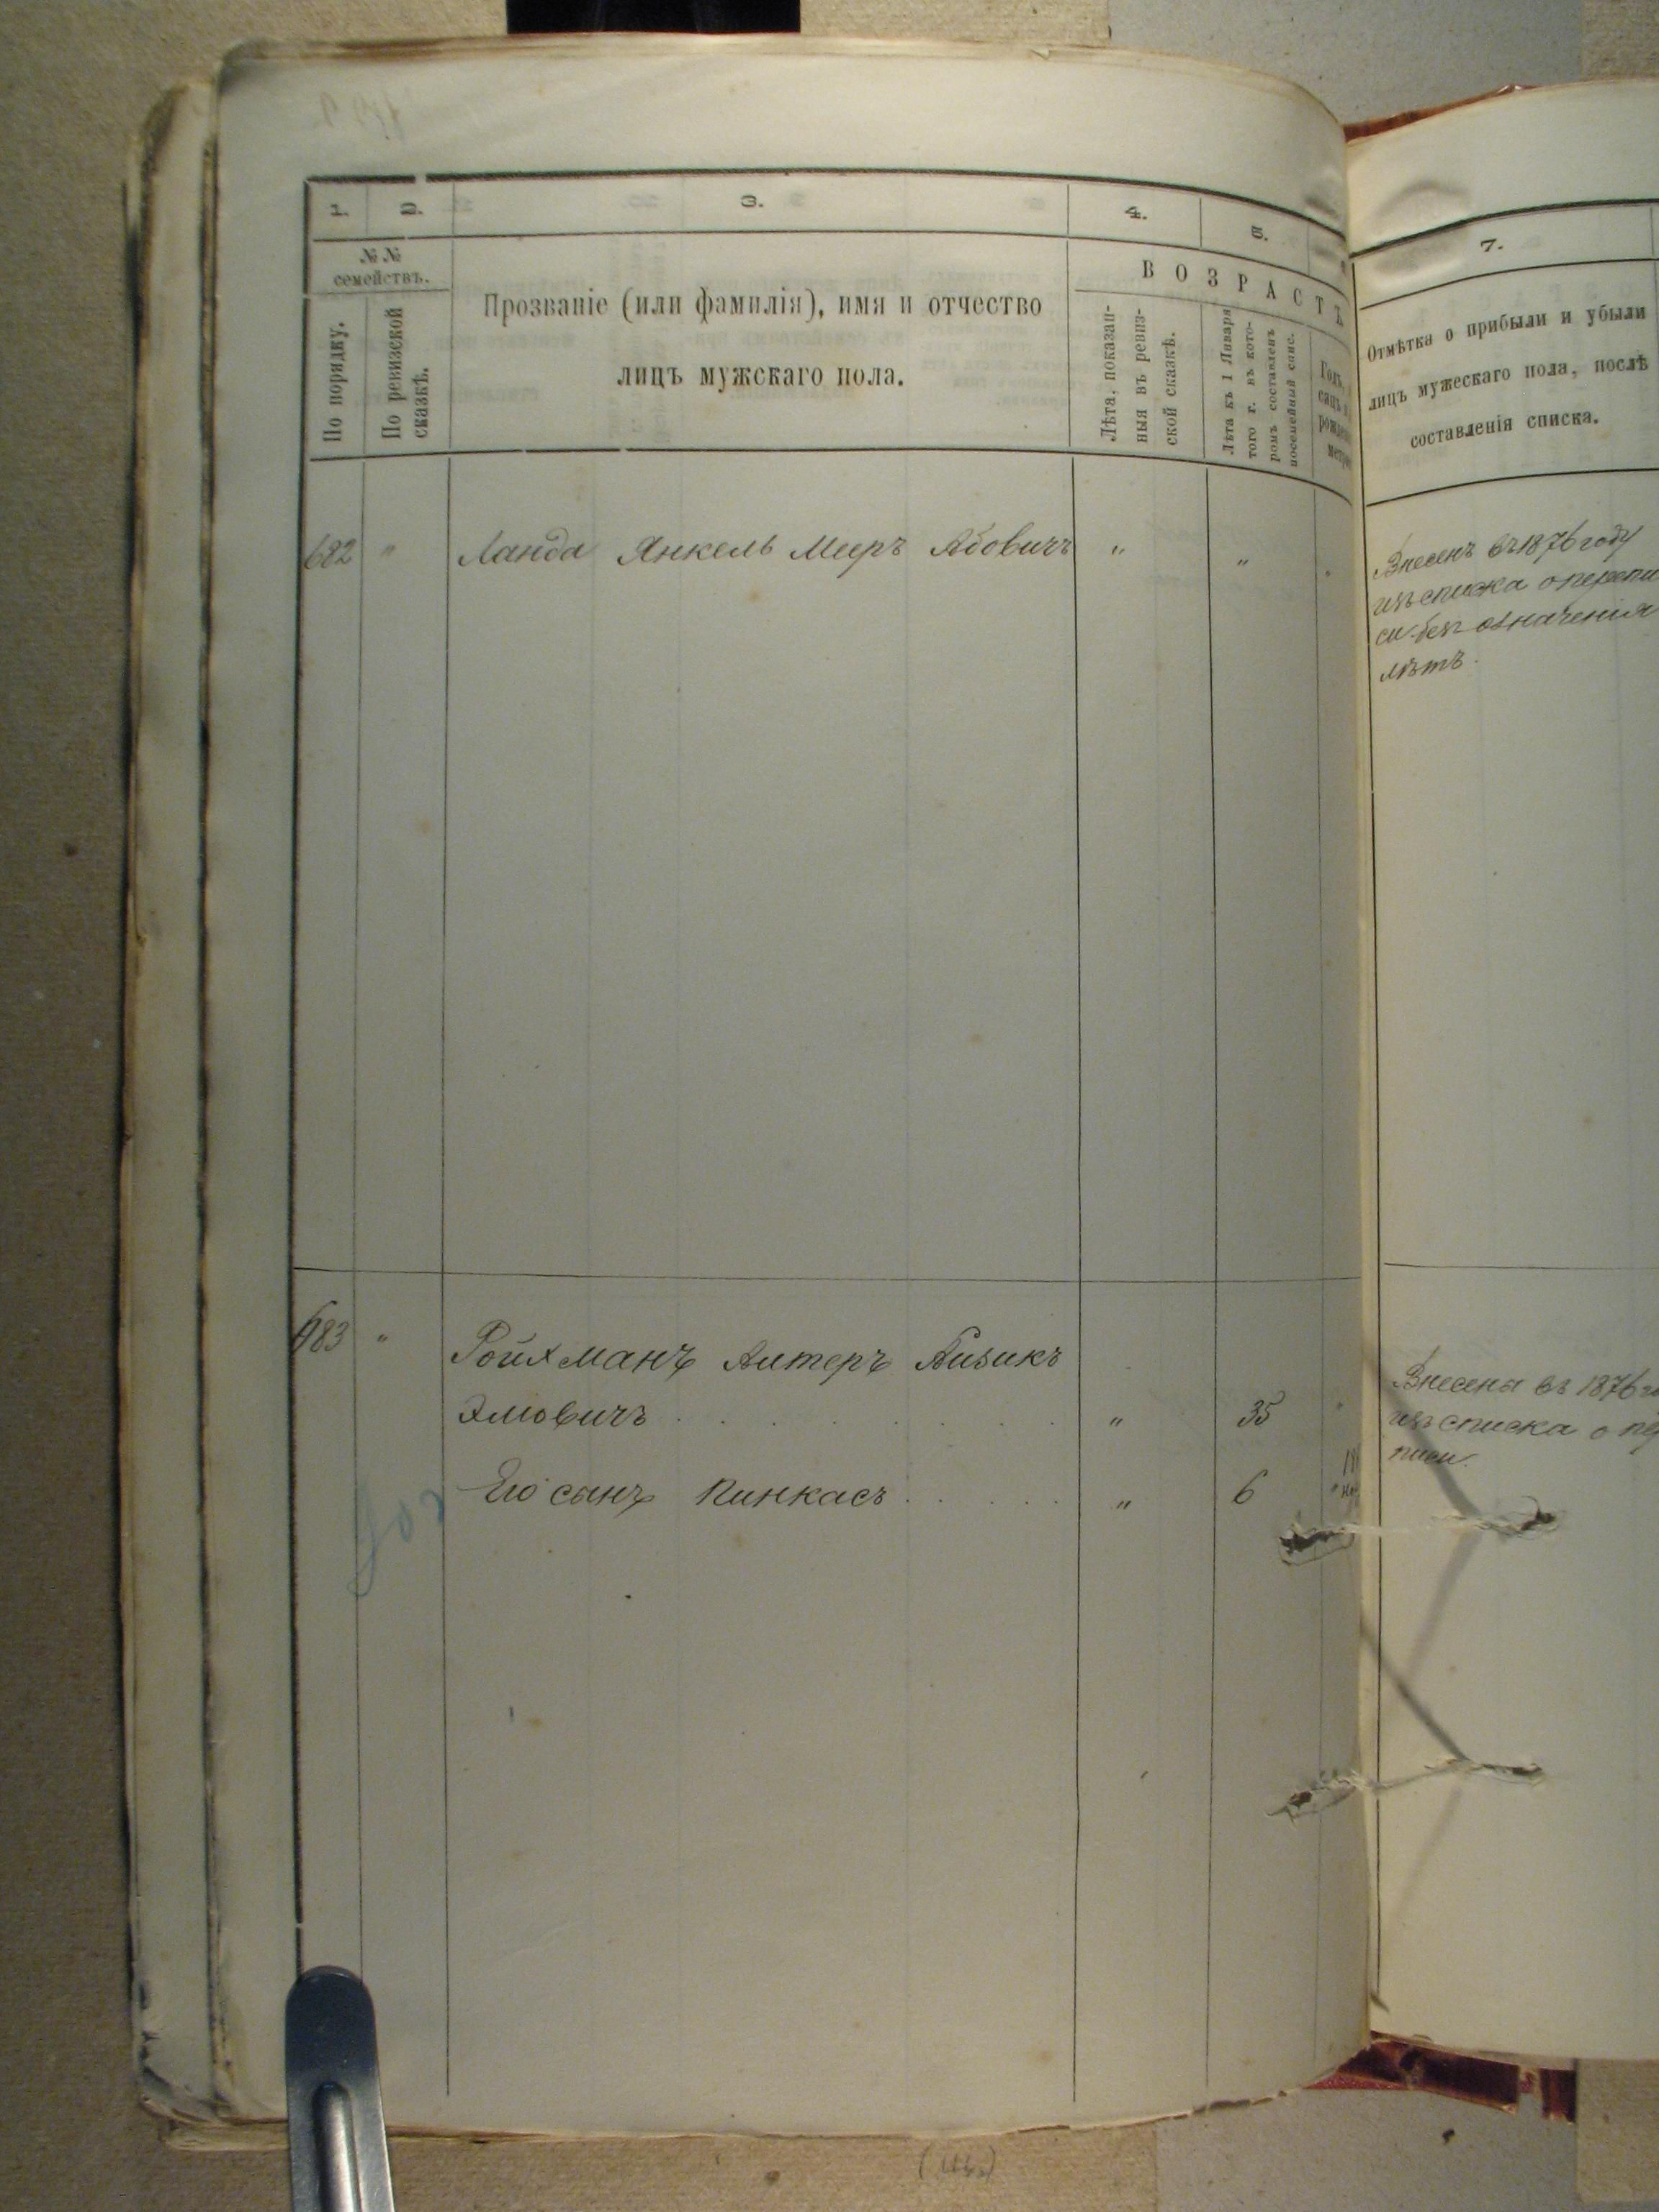 1.
2.
3.
4.
5.
7.
№№
семействъ.
По порядку.
По ревизской
сказкѣ.
Прозваніе (или фамилія), имя и отчество
лицъ мужскаго пола.
ВОЗРАСТЪ
Лѣта, показан-
ныя въ ревиз-
ской сказкѣ.
Лѣта къ 1 Января
того г. въ кото-
ромъ составленъ
посемейный спис.
Отмѣтка о прибыли и убыли
лицъ мужескаго пола, послѣ
составленія списка.
682 " Ланда Янкель Меер Абовичъ " "
Внесенъ въ 1876 году
изъ списка о перепи
си без означенія
лѣтъ.
683 " Ройхманъ Алтеръ Айзикъ
Элиовичъ . . . . . . . . " 35 "
Его сынъ Пинкасъ . . . . . " 6 "
Внесены въ 1876 го
изъ списка о пер
писи.